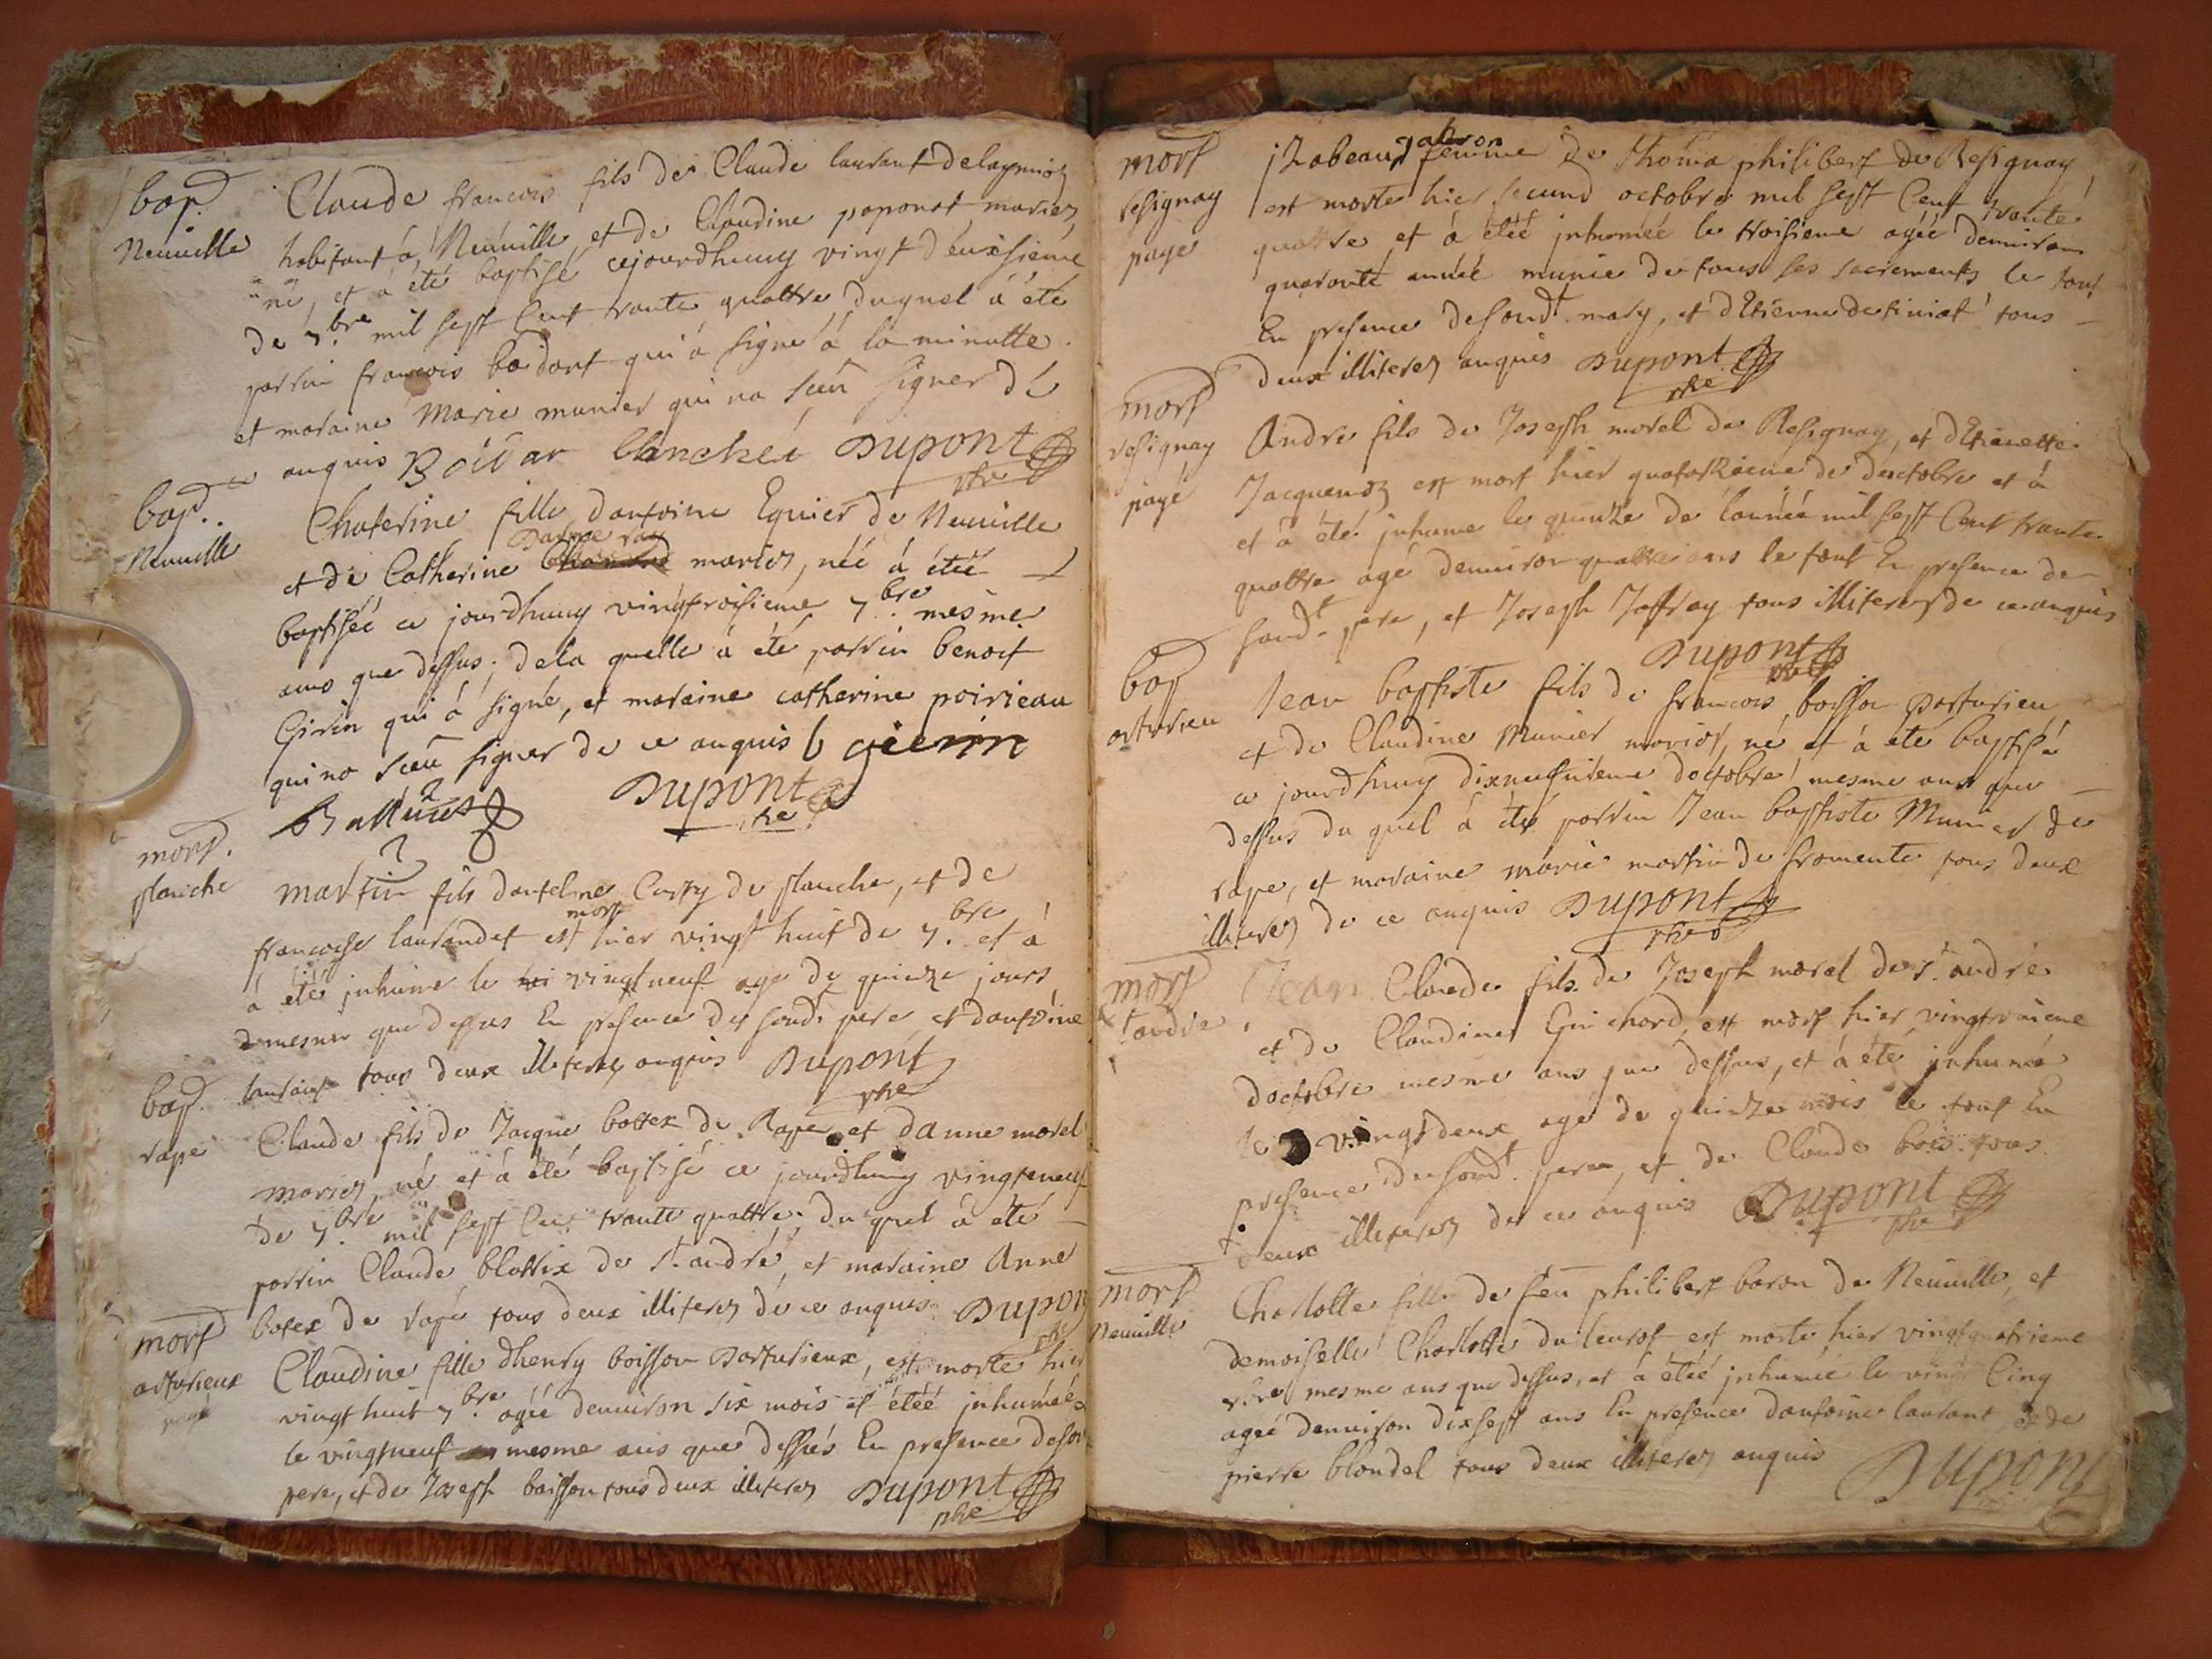 bap.
Neuville
Claude francois fils de Claude laurant
habitant à Neuville, et de Claudine poponat mariez
né, et à été baptisé cejourdhuuy vingt déuxsieme
de 7.bre mil sept Cent trante quattre duquel à été
parrin francois boidart qui à signé à la minutte.
et maraine Marie munier qui na sceu signer dé
ce anquis Boidar blanchet Dupont
ptre
bap.
Neuville
Chaterine fille dantoine Equier de Neuville
et de Catherine mariez, néé à étéé
baptiséé ce jourdhuuy vingtroisieme 7.bre mesme
ans que dessus; dela quelle à été parrin benoit
Girin qui à signé, et maraine catherine poirieau
qui na sceu signer de ce anquis b geerin
Dupont
ptre
mort.
planche
martin fils dantelme Curty de planche, et de
francoise laurandet est mort hier vingt huit de 7.bre et à
à été inhumé le vingtneuf agé de quinze jours
mesme que dessus En presence de soudt pere et dantoine
laurant tous deux illiterez anquis Dupont
ptre
bap.
rape
Claude fils de Jacque bottex de Rape et danne morel
mariez né et à été baptisé ce jourdhuuy vingteneuf
de 7.bre mil sept Cent trante quattre du quel à été
parrin Claude blattrix de st. andré, et maraine Anne
botex de rape tous deux illiterez de ce anquis Dupon
ptre
mort
arturieux
page
Claudine fille dhenry boisson Darturieux, est morte hier
vingt huit 7.bre agéé denuiron six mois et étéé inhuméé
le vingtneuf mesme ans que dessus En presence deson
pere, et de Joseph boisson tous deux illiterez Dupont
ptre
mort
resignay
page
izabeau gabron femme de Thoma philibert de Resignay
est morte hier second octobre mil sept Cent trante
quattre et à étéé inhuméé le troisieme agéé denuiron
quarante année munie de tous ses sacrements le tout
En presence desoudt. mary, et dEtienne tous
deux illiterez anquis Dupont
ptre
mort
resignay
payé
Andre fils de Joseph morel de Resignay, et dEtienette
Jacquemoz est mort hier quatorzieme de doctobre et à
et à été inhumé le quinze de lannéé mil sept Cent trante
quattre agé denuiron quattre ans le tout En presence de
soudt. pere, et Joseph Joffray tous illiterez de ce anquis
Dupont
ptre
bap
arturieu
Jean baptiste fils de francois boisson Darturieu
et de Claudine Munier mariez, né et à été baptisé
ce jourdhuuy dixneufuieme doctobre mesme ans que
dessus du quel à été parrin Jean baptiste Munier de
rape, et maraine marie martin de fromente tous deux
illiterez de ce anquis Dupont
ptre
mort
st. andre
Jean Claude fils de Joseph morel de st. andré
et de Claudine Guichard, est mort hier vingtunieme
doctobre mesme ans que dessus, et à été inhumé
le vingtdeux agé de quinze mois le tout En
presence de soudt. pere, et de Claude bois tous
deux illiterez de ce anquis Dupont
ptre
mort
Neuville
Charlotte fille de feu philibert baron de Neuville, et
demoiselle Charlotte du est morte hier vingtquatrieme
8bre mesme ans que dessus, et à étéé inhuméé le vingt Cinq
agéé denuiron dixsept ans En presence dantoine laurant et de
pierre blondel tous deux illiterez anquis Dupont